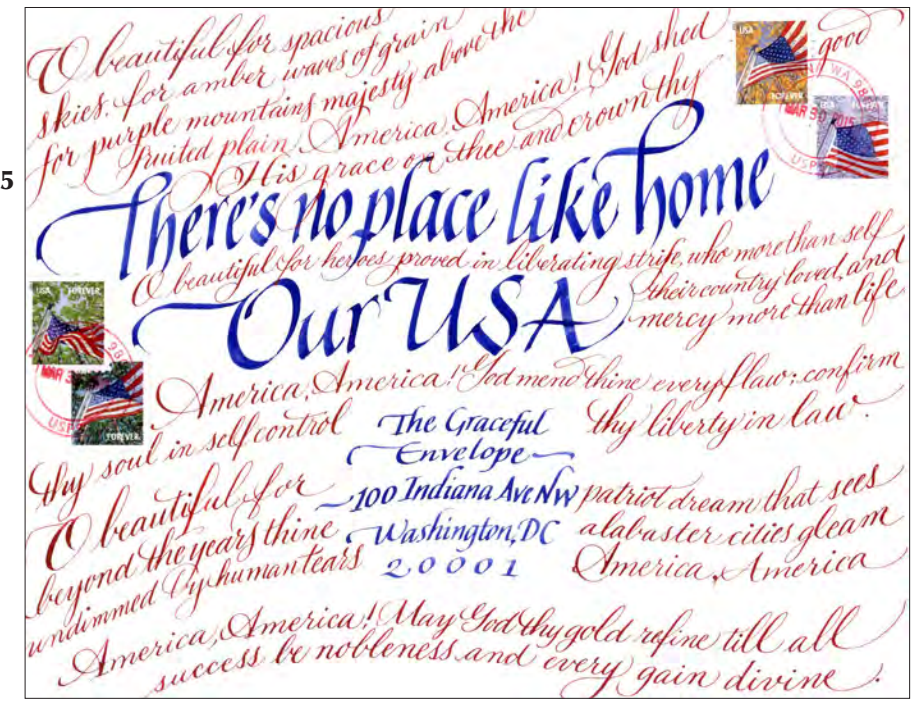 O beautiful for spacious
skies. for amber waves of grain
for purple mountains majesty above the
fruited plain. America, America! God shed
His grace on thee and crown thy good
5
There's no place like home
O beautiful for heroes proved in liberating strife, who more than self
their country loved, and
mercy more than life
Our USA
America, America! God mend thine every flaw; confirm
thy soul in self control
thy liberty in law.
The Graceful
Envelope
100 Indiana Ave NW
Washington, DC
20001
O beautiful for
patriot dream that sees
beyond the years thine
alabaster cities gleam
undimmed by human tears
America, America
America, America! May God thy gold refine till all
success be nobleness and every gain divine.
USA FOREVER
USA FOREVER
WA 98
MAR 30 2015
USP
USA FOREVER
98
MAR 3
USP
FOREVER